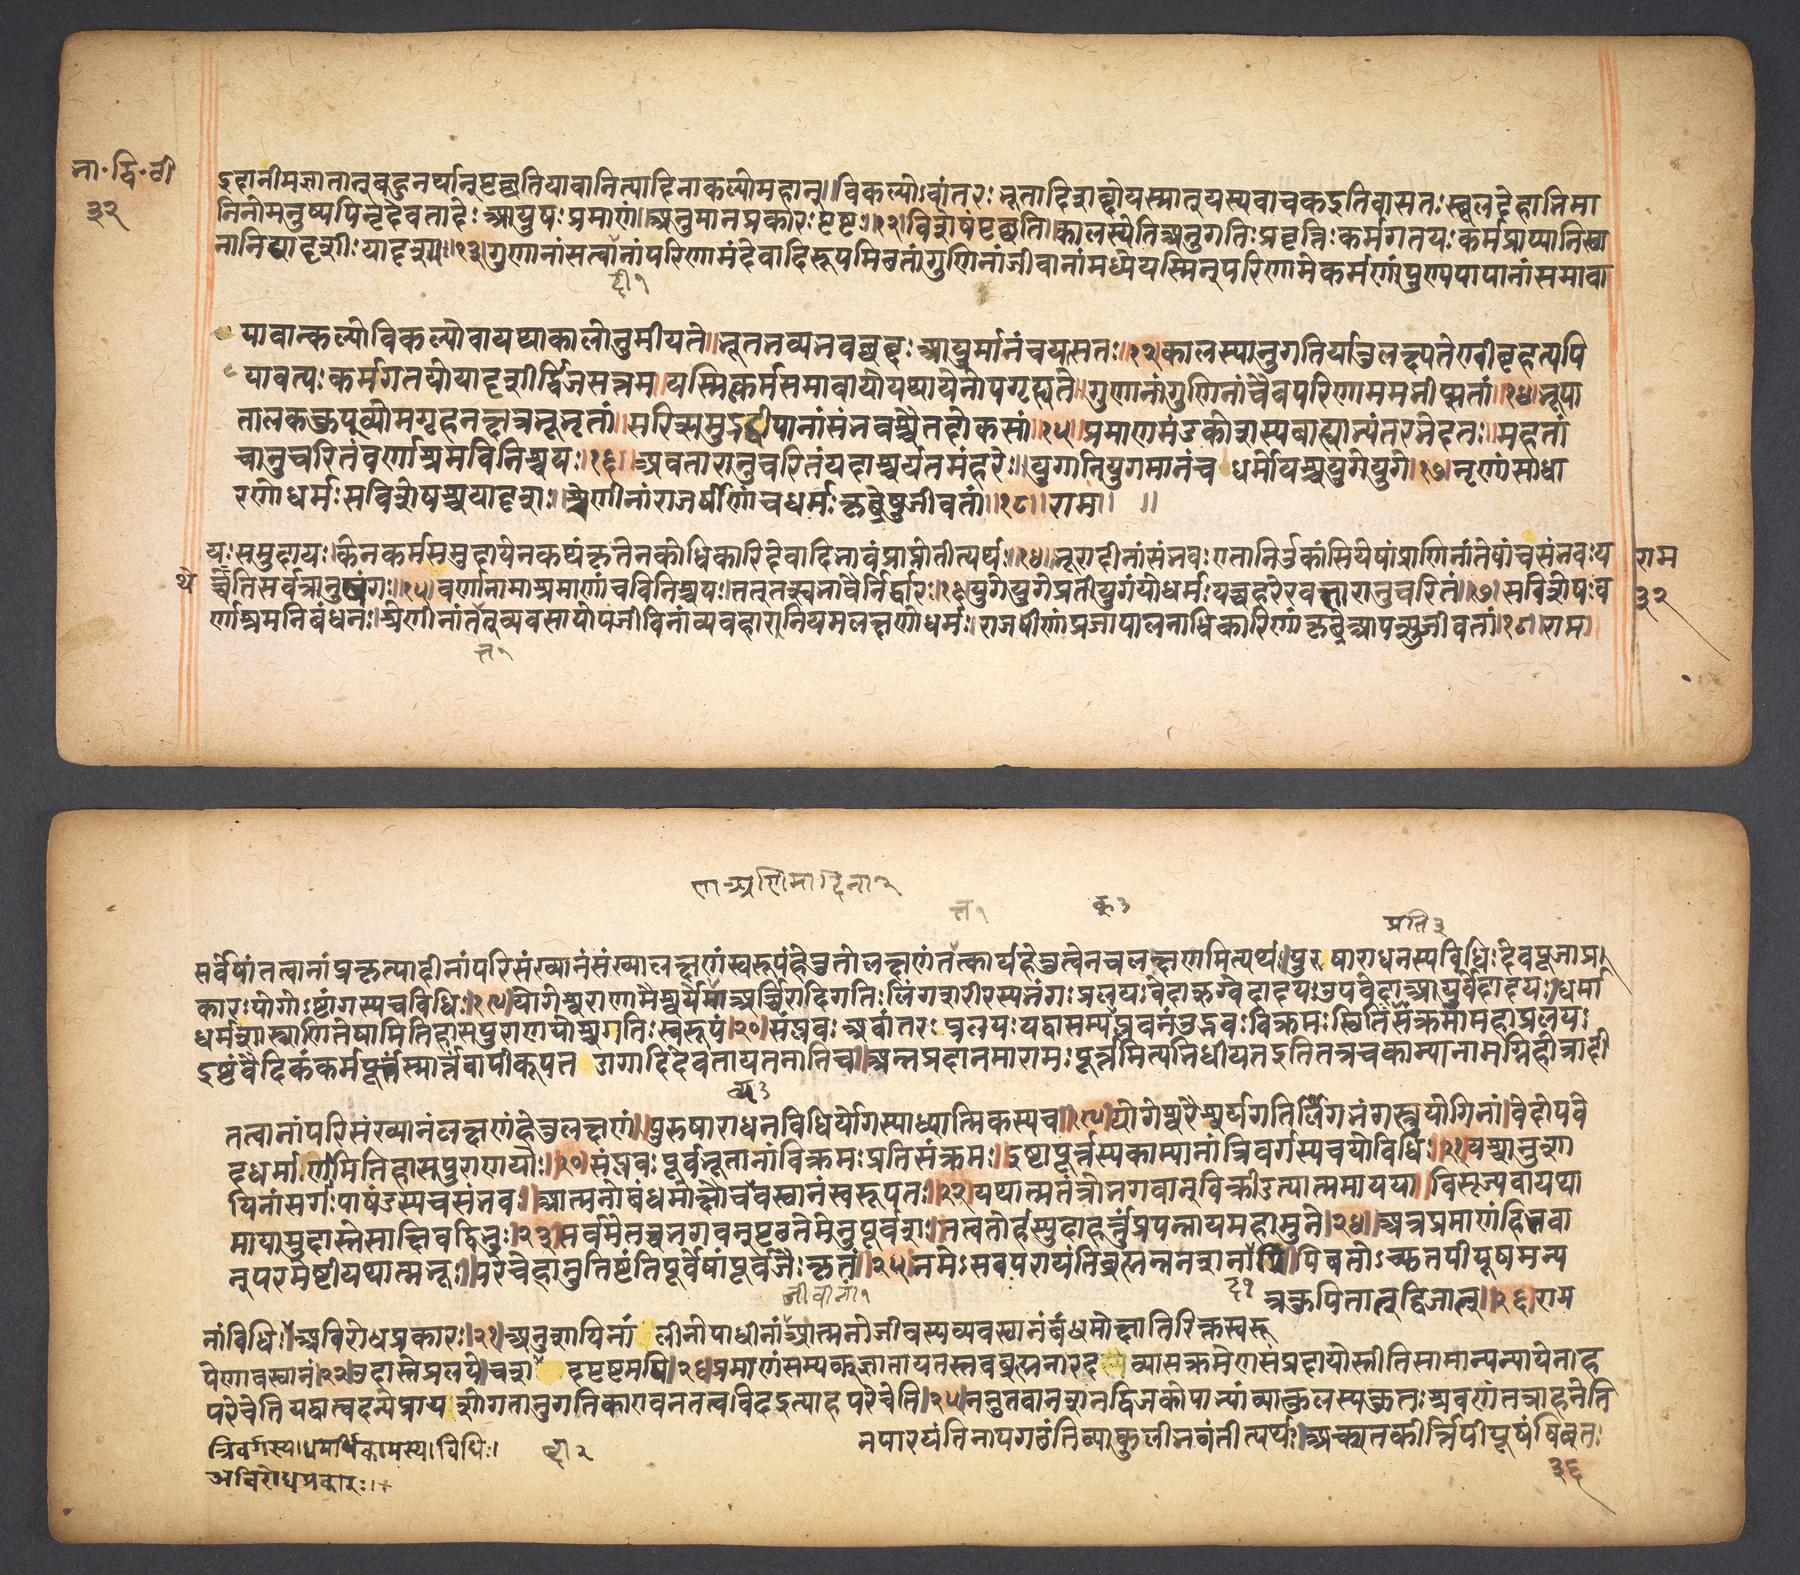 भा॰द्वि॰टी
३२
इदानीमज्ञातान् बहूनर्थान् पृच्छति यावानित्यादिना कल्पो महान्॥ विकल्पोऽवांतरः भूतादिशब्दो यस्मात् यस्य वाचक इति वा सतः स्थूलदेहाभिमा
निनो मनुष्यपितृदेवतादेः आयुषः प्रमाणं॥ अनुमानप्रकारः पृष्टः॥१२॥ विशेषं पृच्छति। कालस्येति अनुगतिः प्रवृत्तिः कर्मगतयः कर्मप्राप्यानि स्था
नानि द्यादृशीः यादृश्यः॥१३॥ गुणानां सत्वानां परिणामं देवादिरूपमिछतां गुणिनां जीवानां मध्ये यस्मिन् परिणामे कर्मणां पुण्यपापानां समावा
दी१
यावान्कल्पो विकल्पो वा यथा कालोनुमीयते॥ भूतभव्यभवच्छब्दः आयुर्मानं च यत्सतः॥१२॥ कालस्यानुगतिर्या तु लक्ष्यतेण्वी बृहत्यपि
यावत्यः कर्मगतयो यादृशीर्द्विजसत्तम॥ यस्मिन्कर्मसमावायो यथा येनोपगृह्यते॥ गुणानां गुणिनां चैव परिणाममभीप्सतां॥१४॥ भूपा
तालककुब्व्योमगृहनक्षत्रभूभृतां॥ सरित्समुद्रद्वीपानां संभवश्चैतदोकसां॥१५॥ प्रमाणमंडकोशस्य बाह्याभ्यंतरभेदतः॥ महतां
चानुचरितं वर्णाश्रमविनिश्चयः॥१६॥ अवतारानुचरितं यदाश्चर्यतमं हरेः॥ युगानि युगमानं च धर्मो यश्च युगे युगे॥१७॥ नृणां साधा
रणो धर्मः सविशेषश्च यादृशः॥ श्रेणीनां राजर्षीणां च धर्मः कृछ्रेषु जीवतां॥१८॥ राम॥ ॥
यः समुदायः। केन कर्मसमुदायेन कथं कृतेन कोधिकारि देवादिभावं प्राप्नोतीत्यर्थः॥१४॥ भूरादीनां संभवः एतानि र्उकांसि येषां प्राणिनां तेषां च संभवः य
थे
र्चेति सर्वत्रानुषंगः॥१५॥ वर्णानामाश्रमाणां च विनिश्चयः। तत्तत्स्वभावैर्निर्द्धारः॥१६॥ युगे युगे प्रतीयुगं यो धर्मः यच्च हरेरवतारानुचरितं॥१७॥ सविशेषः व
र्णाश्रमनिबंधनः। श्रेणीनां तत्तुव्यवसायोपजीविनां व्यवहारानियमलक्षणो धर्मः। राजर्षीणां प्रजापालनाधिकारिणां कृछ्रे आपत्सु जीवतां॥१८॥ राम॥
त्त१
राम
३२
णाअणिमादिना२
त्त१
कृ३
प्रति३
सर्वेषां तत्वानां प्रकृत्यादीनां परिसंख्यानं संख्या लक्षणं स्वरूपं हेतुतो लक्षणं तत्कार्यहेतुत्वेन च लक्षणमित्यर्थः। पुरुषाराधनस्य विधिः देवपूजाप्र
कारः योगोऽष्टांगस्य च विधिः॥१९॥ योगेश्वराणामैश्वर्येणअर्च्चिरादिगतिः लिंगशरीरस्य भंगः प्रलयः वेदा ऋग्वेदादयः उपवेदा आयुर्वेदादयः धर्मा
धर्मशास्त्राणि तेषामितिहासपुराणयोश्च गतिः स्वरूपं॥२०॥ संप्लवः अवांतरः प्रलयः यद्वा सम्यक् प्लवनं उद्भवः विक्रमः स्थितिः संक्रमो महाप्रलयः
इष्टं वैदिकं कर्म पूर्तं स्मार्तं वापीकूपतडागादिदेवतायतनानि च॥ अन्नप्रदानमारामः पूर्त्तमित्यभिधीयत इति तत्र च काम्यानामग्निहोत्रादी
व्य३
तत्वानां परिसंख्यानं लक्षणं हेतुलक्षणं॥ पुरुषाराधनविधिर्योगस्याध्यात्मिकस्य च॥१९॥ योगेश्वरैश्वर्यगतिर्लिंगभंगस्तु योगिनां॥ वेदोपवे
दधर्माणामितिहासपुराणयोः॥२०॥ संप्लवः पूर्वभूतानां विक्रमः प्रतिसंक्रमः॥ इष्टापूर्त्तस्य काम्यानां त्रिवर्गस्य च यो विधिः॥२१॥ यश्चानुशा
यिनां सर्गः पाषंडस्य च संभवः॥ आत्मनो बंधमोक्षौ च व्यवस्थानं स्वरूपतः॥२२॥ यथात्मतंत्रो भगवान् विक्रीडत्यात्ममायया॥ विसृज्य वा यथा
मायामुदास्ते साक्षिवद्विभुः॥२३॥ सर्वमेतच्च भगवन् पृछते मेनुपूर्वशः॥ तत्वतोर्हस्युदाहर्त्तुं प्रपन्नाय महामुने॥२४॥ अत्र प्रमाणं हि भवा
न् परमेष्टी यथात्मभूः॥ परे चेहानुतिष्टंति पूर्वेषां पूर्वजैः कृतं॥२५॥ न मेऽसवः परायंति ब्रह्मन्ननशनादपि॥ पिबतोऽच्युतपीयूषमन्य
त्रकुपिताद् द्विजात्॥२६॥ राम
जीवानां१
द१
नां विधिः॥ अविरोधप्रकारः॥२१॥ अनुशायिनां लीनोपाधीनां आत्मनो जीवस्य व्यवस्थानं बंधमोक्षातिरिक्तस्वरू
पेणावस्थानं॥२२॥ उदास्ते प्रलये॥ चशब्दादपृष्टमपि॥२४॥ प्रमाणं सम्यक् ज्ञाना यतस्तव ब्रह्मनारदव्यासक्रमेण संप्रदायोस्तीति सामान्यन्यायेनाह
परे चेति यद्वा त्वदन्ये प्रायशो गतानुगतिका एव न तत्वविद इत्याह परे चेति॥२५॥ ननु तवानशनद्विजकोपाभ्यां व्याकुलस्य कुतः श्रवणं तत्राह नेति
न पारयंति नापगछंति व्याकुली भवंतीत्यर्थः। अच्युतकीर्त्तिपीयूषं पिबतः
त्रिवर्गस्य। धर्मार्थकामस्य। विधिः।
ब्दा२
अविरोधप्रकारः।+
३६